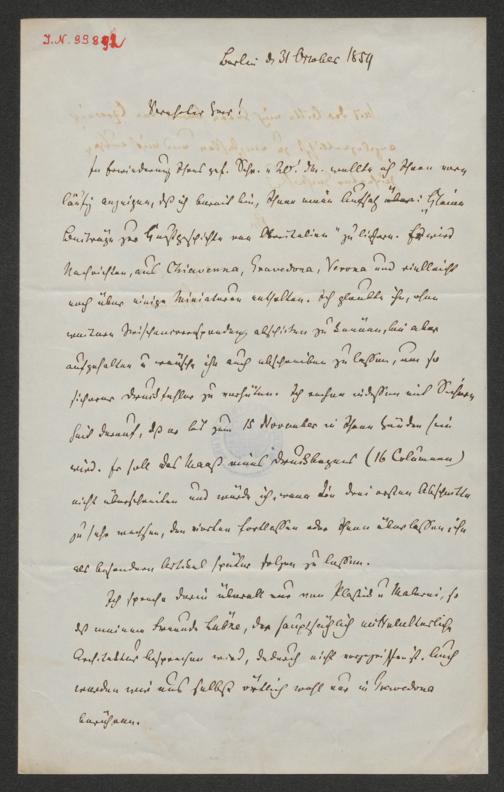 J.N. 99892
Berlin d 31 October 1859
Verehrter Herr!
In Erwiederung Ihres gef. Schr. v. 20' dM. wollte ich Ihnen vor
läufig anzeigen, daß ich bereit bin, Ihnen einen Aufsatz über: "Kleine
Beiträge zur Kunstgeschichte von Oberitalien" zu liefern. Er wird
Nachrichten, aus Chiavenna, Gravedona, Verona und vielleicht
noch über einige Miniaturen enthalten. Ich glaubte ihn, ohne
weitere abschicken zu können, bin aber
aufgehalten u wünsche ihn auch abschreiben zu lassen, um so
sicherer Druckfehler zu verhüten. Ich rechne indessen mit Sicher
heit darauf, daß er bis zum 15 November in Ihren Händen sein
wird. Er soll das Maaß eines Druckbogens (16 Columnen)
nicht überschreiten und würde ich, wenn die drei ersten Abschnitte
zu sehr wachsen, den vierten fortlassen oder Ihnen überlassen, ihn
als besondern Artikel später folgen zu lassen.
Ich spreche darin überall nur von Plastik u Malerei, so
daß meinem Freunde Lübke, der hauptsächlich mittelalterliche
Architektur besprechen wird, dadurch nicht vorgegriffen ist. Auch
werden wir uns selbst örtlich wohl nur in Gravedona
berühren.